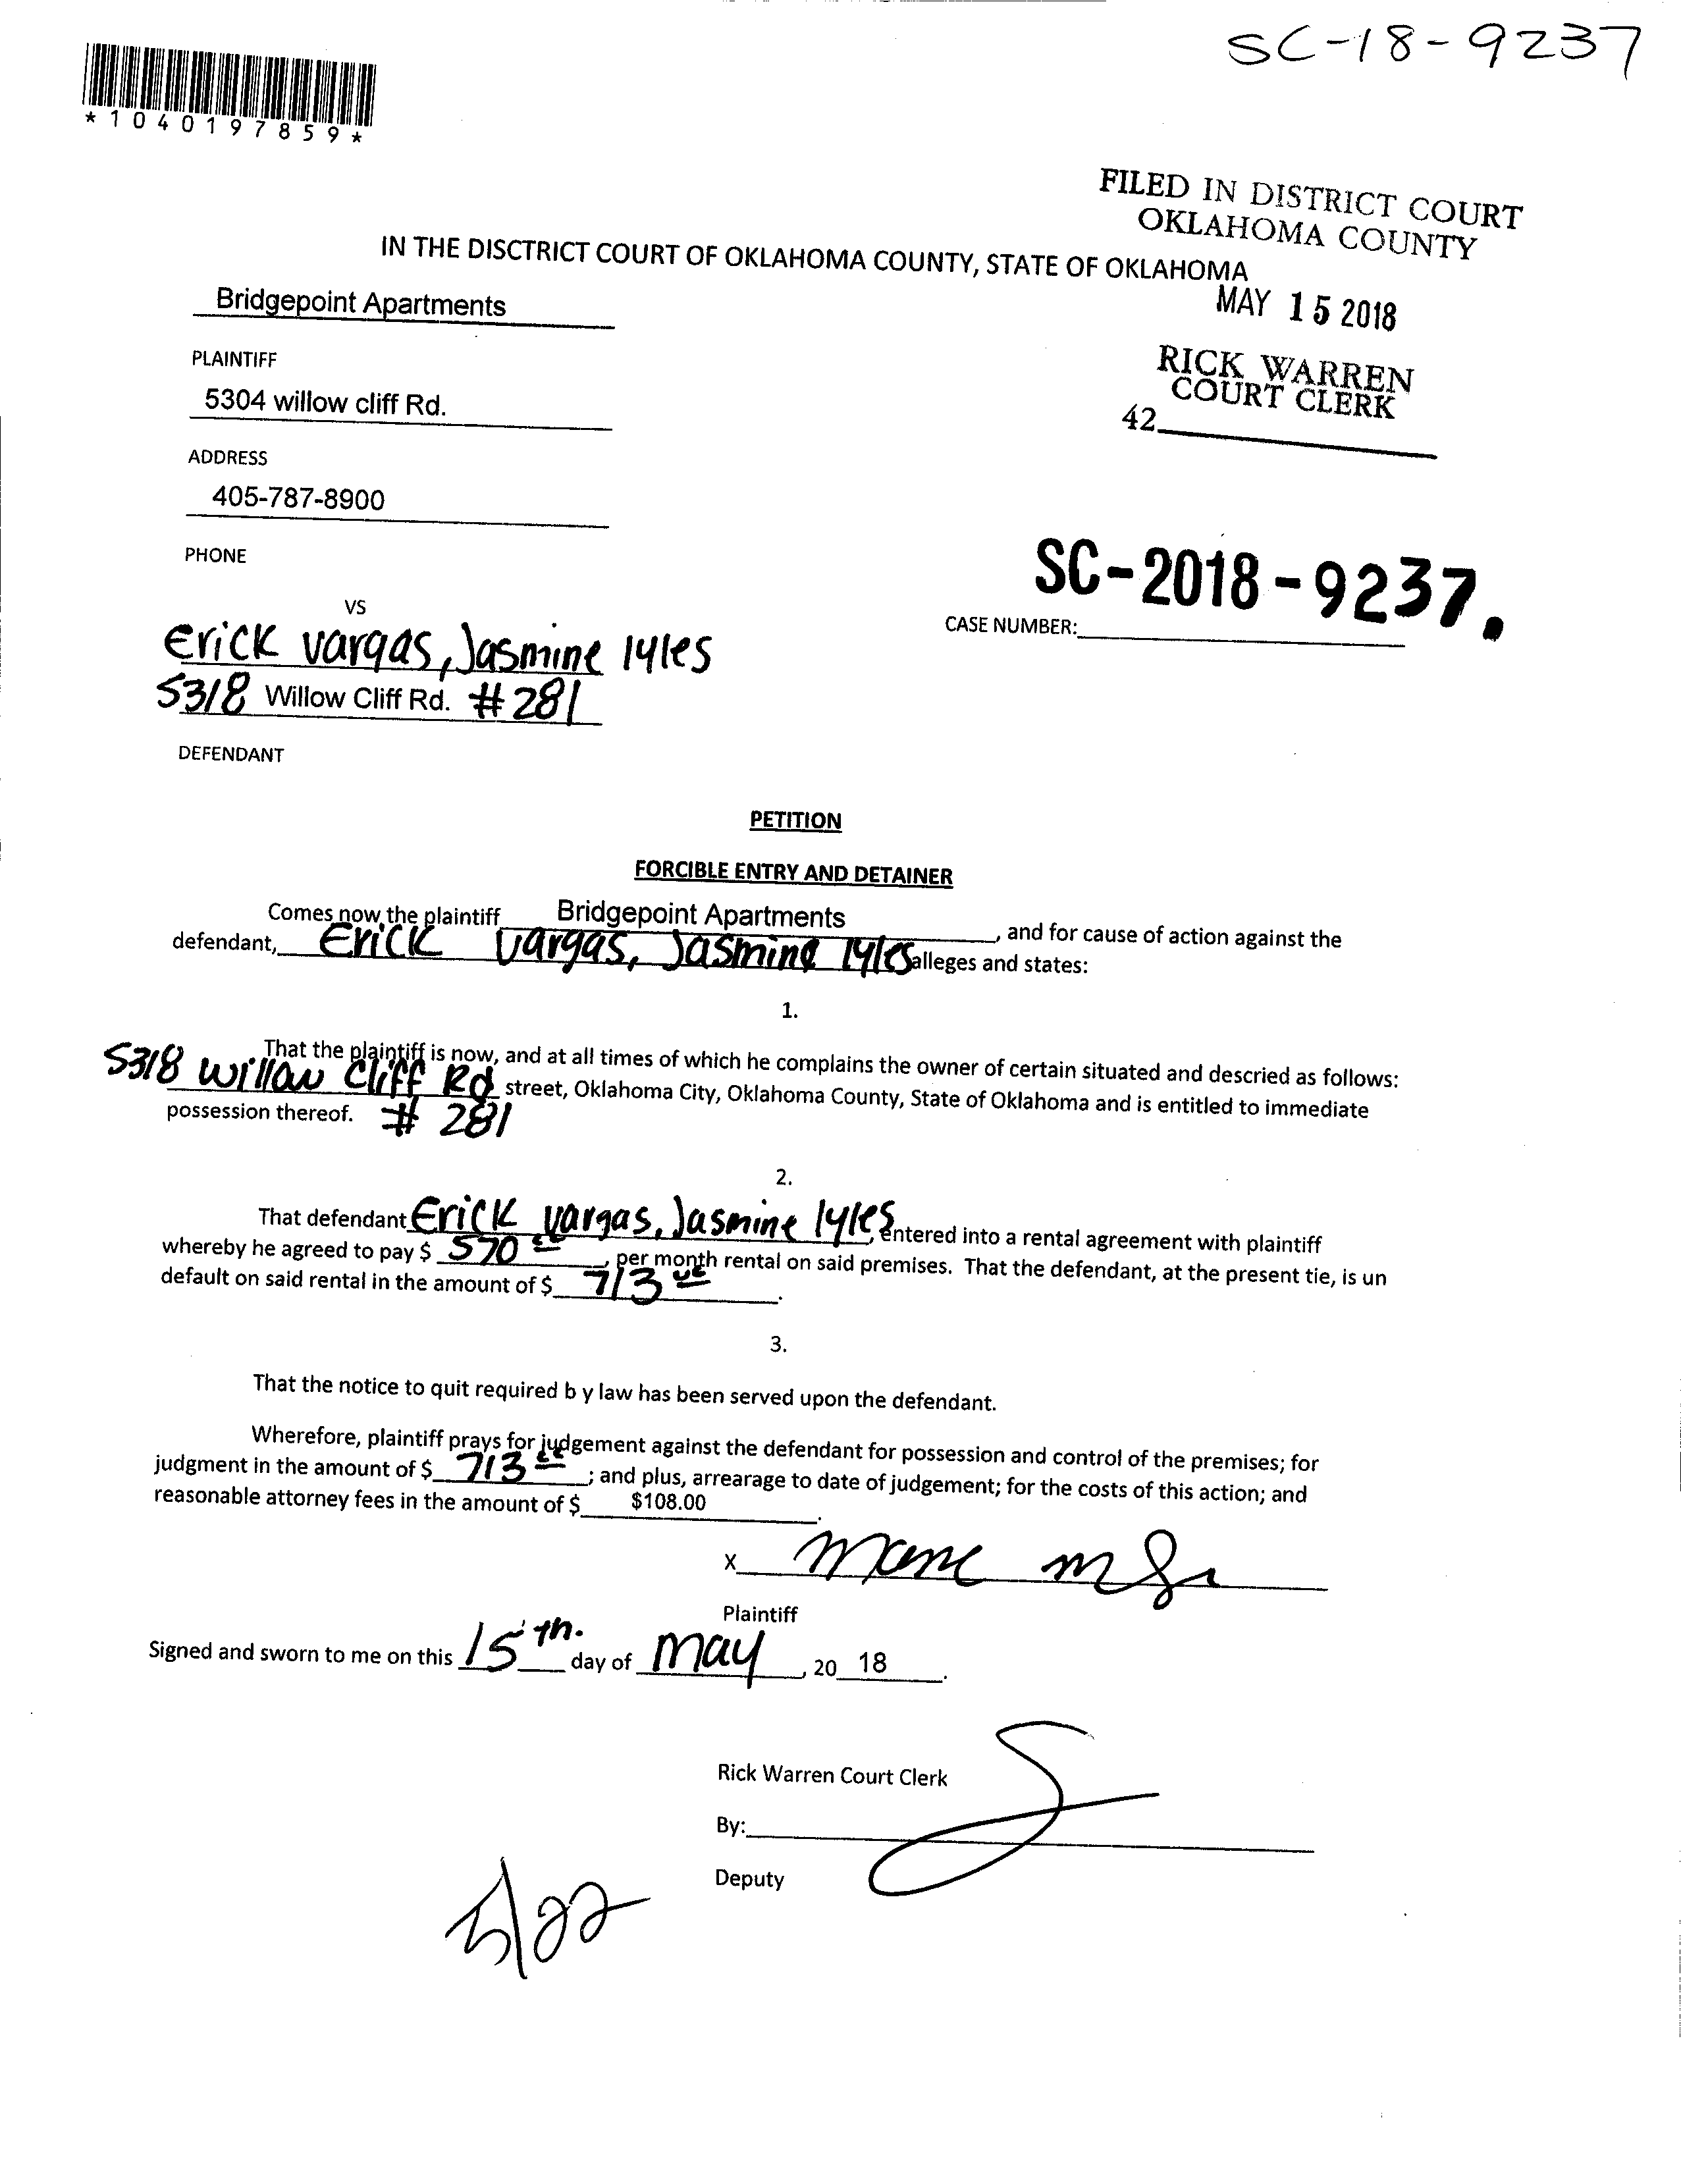 SC-18-9237
*1040197859*
FILED IN DISTRICT COURT
OKLAHOMA COUNTY
IN THE DISCTRICT COURT OF OKLAHOMA COUNTY, STATE OF OKLAHOMA
MAY 15 2018
Bridgepoint Apartments
PLAINTIFF
RICK WARREN
COURT CLERK
42
5304 willow cliff Rd.
ADDRESS
405-787-8900
PHONE
SC-2018-9237.
CASE NUMBER:
VS
Erick vargas, Jasmine lyles
5318 Willow Cliff Rd. #281
DEFENDANT
PETITION
FORCIBLE ENTRY AND DETAINER
Comes now the plaintiff Bridgepoint Apartments, and for cause of action against the
defendant, Erick vargas, Jasmine lyles alleges and states:
1.
That the plaintiff is now, and at all times of which he complains the owner of certain situated and descried as follows:
5318 Willow Cliff Rd street, Oklahoma City, Oklahoma County, State of Oklahoma and is entitled to immediate
possession thereof. # 281
2.
That defendant Erick vargas, Jasmine lyles, entered into a rental agreement with plaintiff
whereby he agreed to pay $ 570, per month rental on said premises. That the defendant, at the present tie, is un
default on said rental in the amount of $ 713.
3.
That the notice to quit required b y law has been served upon the defendant.
Wherefore, plaintiff prays for judgement against the defendant for possession and control of the premises; for
judgment in the amount of $ 713; and plus, arrearage to date of judgement; for the costs of this action; and
reasonable attorney fees in the amount of $ $108.00.
X
Plaintiff
Signed and sworn to me on this 15th. day of may, 20 18.
Rick Warren Court Clerk
By:
Deputy
5/22